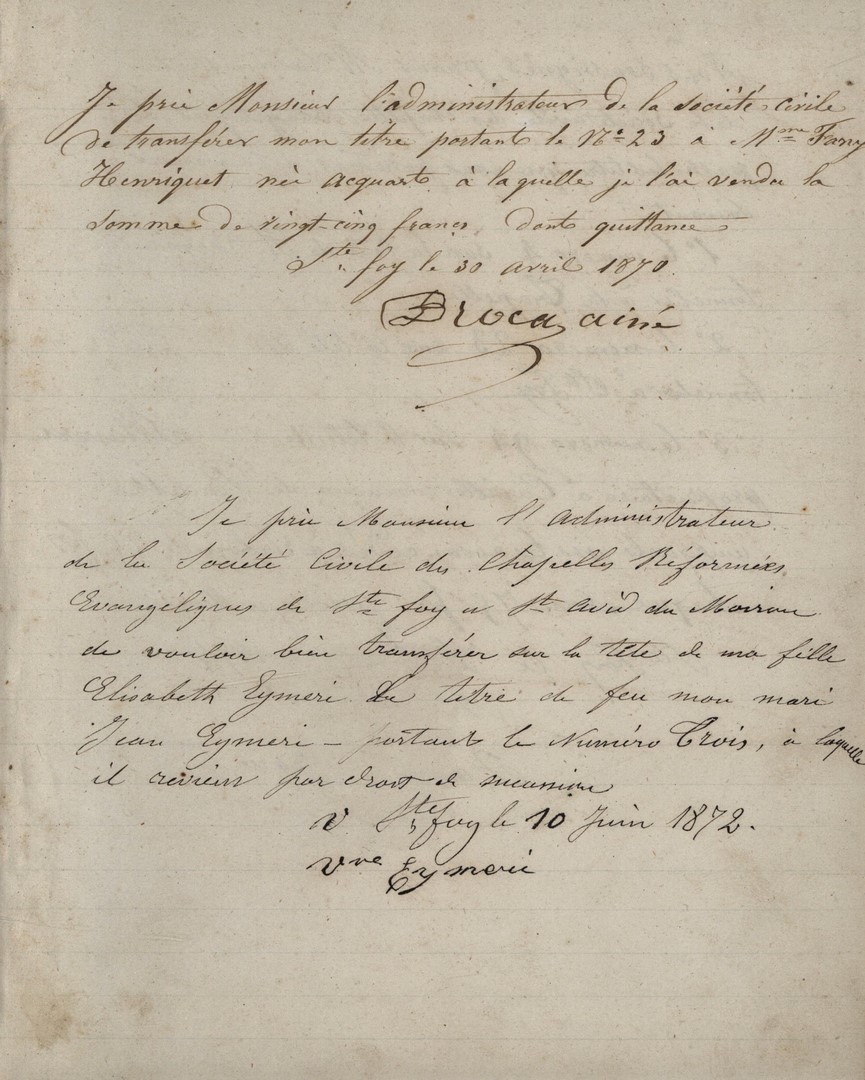 Je prie Monsieur l'administrateur de la société civile
de transférer mon titre portant le N° 23 à Mme Fany
Henriquet née acquart à laquelle je l'ai vendu la
somme de vingt-cinq francs dont quittance
Ste foy le 30 avril 1870.
Broca ainé
Je prie Monsieur l'administrateur
de la Société Civile des Chapelles Réformées
Evangéliques de Ste foy et St avid du Moiron
de vouloir bien transférer sur la tête de ma fille
Elisabeth Eymeri Le titre de feu mon mari
Jean Eymeri - portant le Numéro Trois, à laquelle
il revient par droit de succession
Ste foy le 10 Juin 1872.
vve Eymeri